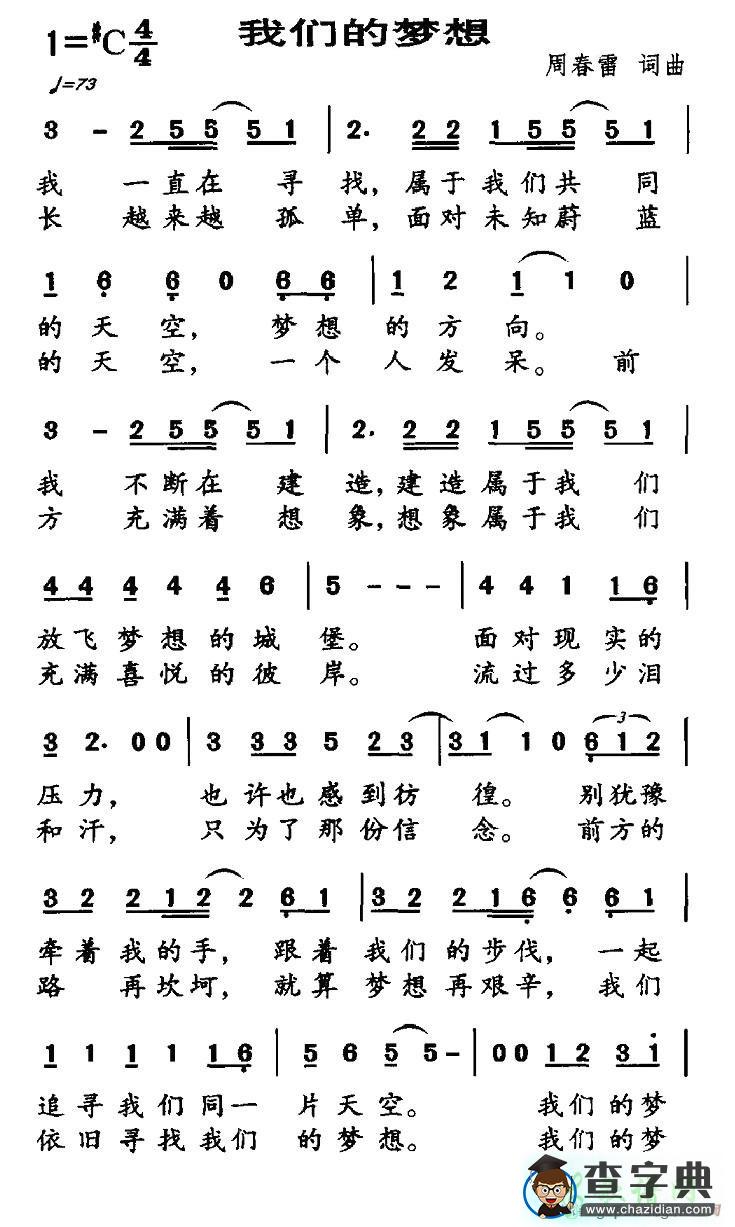 我们的梦想
1=#C 4/4
♩=73
周春雷 词曲
3 - 2 5 5 5 1 | 2. 2 2 1 5 5 5 1 |
我 一直在 寻 找，属于我们共 同
长 越来越 孤 单，面对未知蔚 蓝
1 6 6 0 6 6 | 1 2 1 1 0 |
的天 空， 梦 想 的 方 向。
的天 空， 一 个 人 发 呆。 前
3 - 2 5 5 5 1 | 2. 2 2 1 5 5 5 1 |
我 不断在 建 造，建造属于我 们
方 充满着 想 象，想象属于我 们
4 4 4 4 4 6 | 5 - - - | 4 4 1 1 6 |
放飞梦想的城 堡。 面对现实的
充满喜悦的彼 岸。 流过多少泪
3 2. 0 0 | 3 3 3 5 2 3 | 3 1 1 0 6 1 2 |
3
压力， 也许也感到彷 徨。 别犹豫
和汗， 只为了那份信 念。 前方的
3 2 2 1 2 2 2 6 1 | 3 2 2 1 6 6 6 1 |
牵着我的手， 跟着我们的步伐，一起
路 再坎坷， 就算梦想再艰辛，我们
1 1 1 1 1 6 | 5 6 5 5 - | 0 0 1 2 3 1 |
追寻我们同一 片天空。 我们的梦
依旧寻找我们 的梦想。 我们的梦
查字典
www.chazidian.com